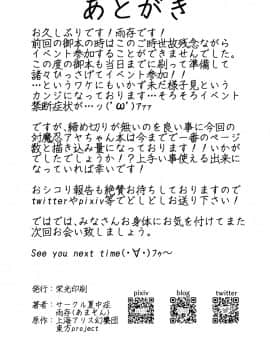 あとがき
お久しぶりです！雨存です！
前回の御本の時はこのご時世故残念ながら
イベント参加することができませんでした。
この度の御本も当日までに刷って準備して
諸々ひっさげてイベント参加！！
…というワケにもいかずまだ様子見という
カンジになっております…そろそろイベント
禁断症状が…ッ(˙ω˙)ｱｧｧ
ですが、締め切りが無いのを良い事に今回の
対魔忍アヤちゃん本は今までで一番のページ
数と描き込み量になっております！！いかが
でしたでしょうか！？上手い事使える出来に
なっていれば幸いです！
おシコリ報告も絶賛お待ちしておりますので
twitterやpixiv等でどしどしお送り下さい！
ではでは、みなさんお身体にお気を付けてまた
次回お会い致しましょう。
See you next time(･∀･)ﾌｩ～
発行：栄光印刷
著者：サークル夏中症
雨存(あまぞん)
原作：上海アリス幻樂団
東方project
pixiv blog twitter